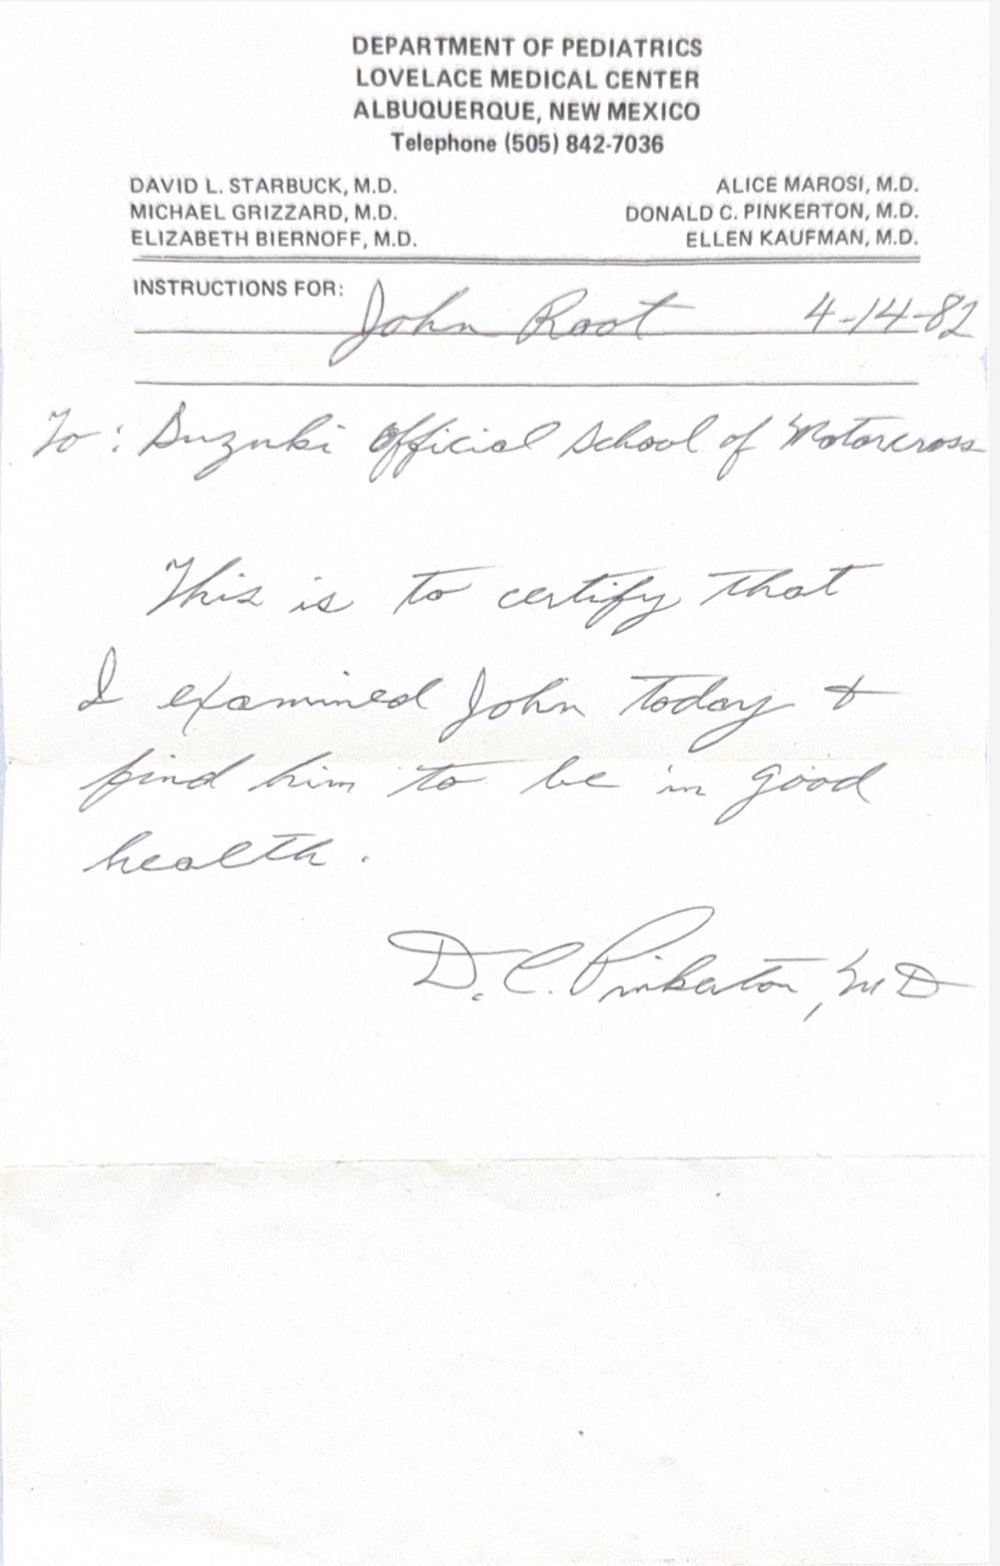 DEPARTMENT OF PEDIATRICS
LOVELACE MEDICAL CENTER
ALBUQUERQUE, NEW MEXICO
Telephone (505) 842-7036
DAVID L. STARBUCK, M.D. ALICE MAROSI, M.D.
MICHAEL GRIZZARD, M.D. DONALD C. PINKERTON, M.D.
ELIZABETH BIERNOFF, M.D. ELLEN KAUFMAN, M.D.
INSTRUCTIONS FOR: John Root 4-14-82
To: Suzuki Official School of Motorcross
This is to certify that
I examined John today &
find him to be in good
health.
D. C. Pinkerton, MD